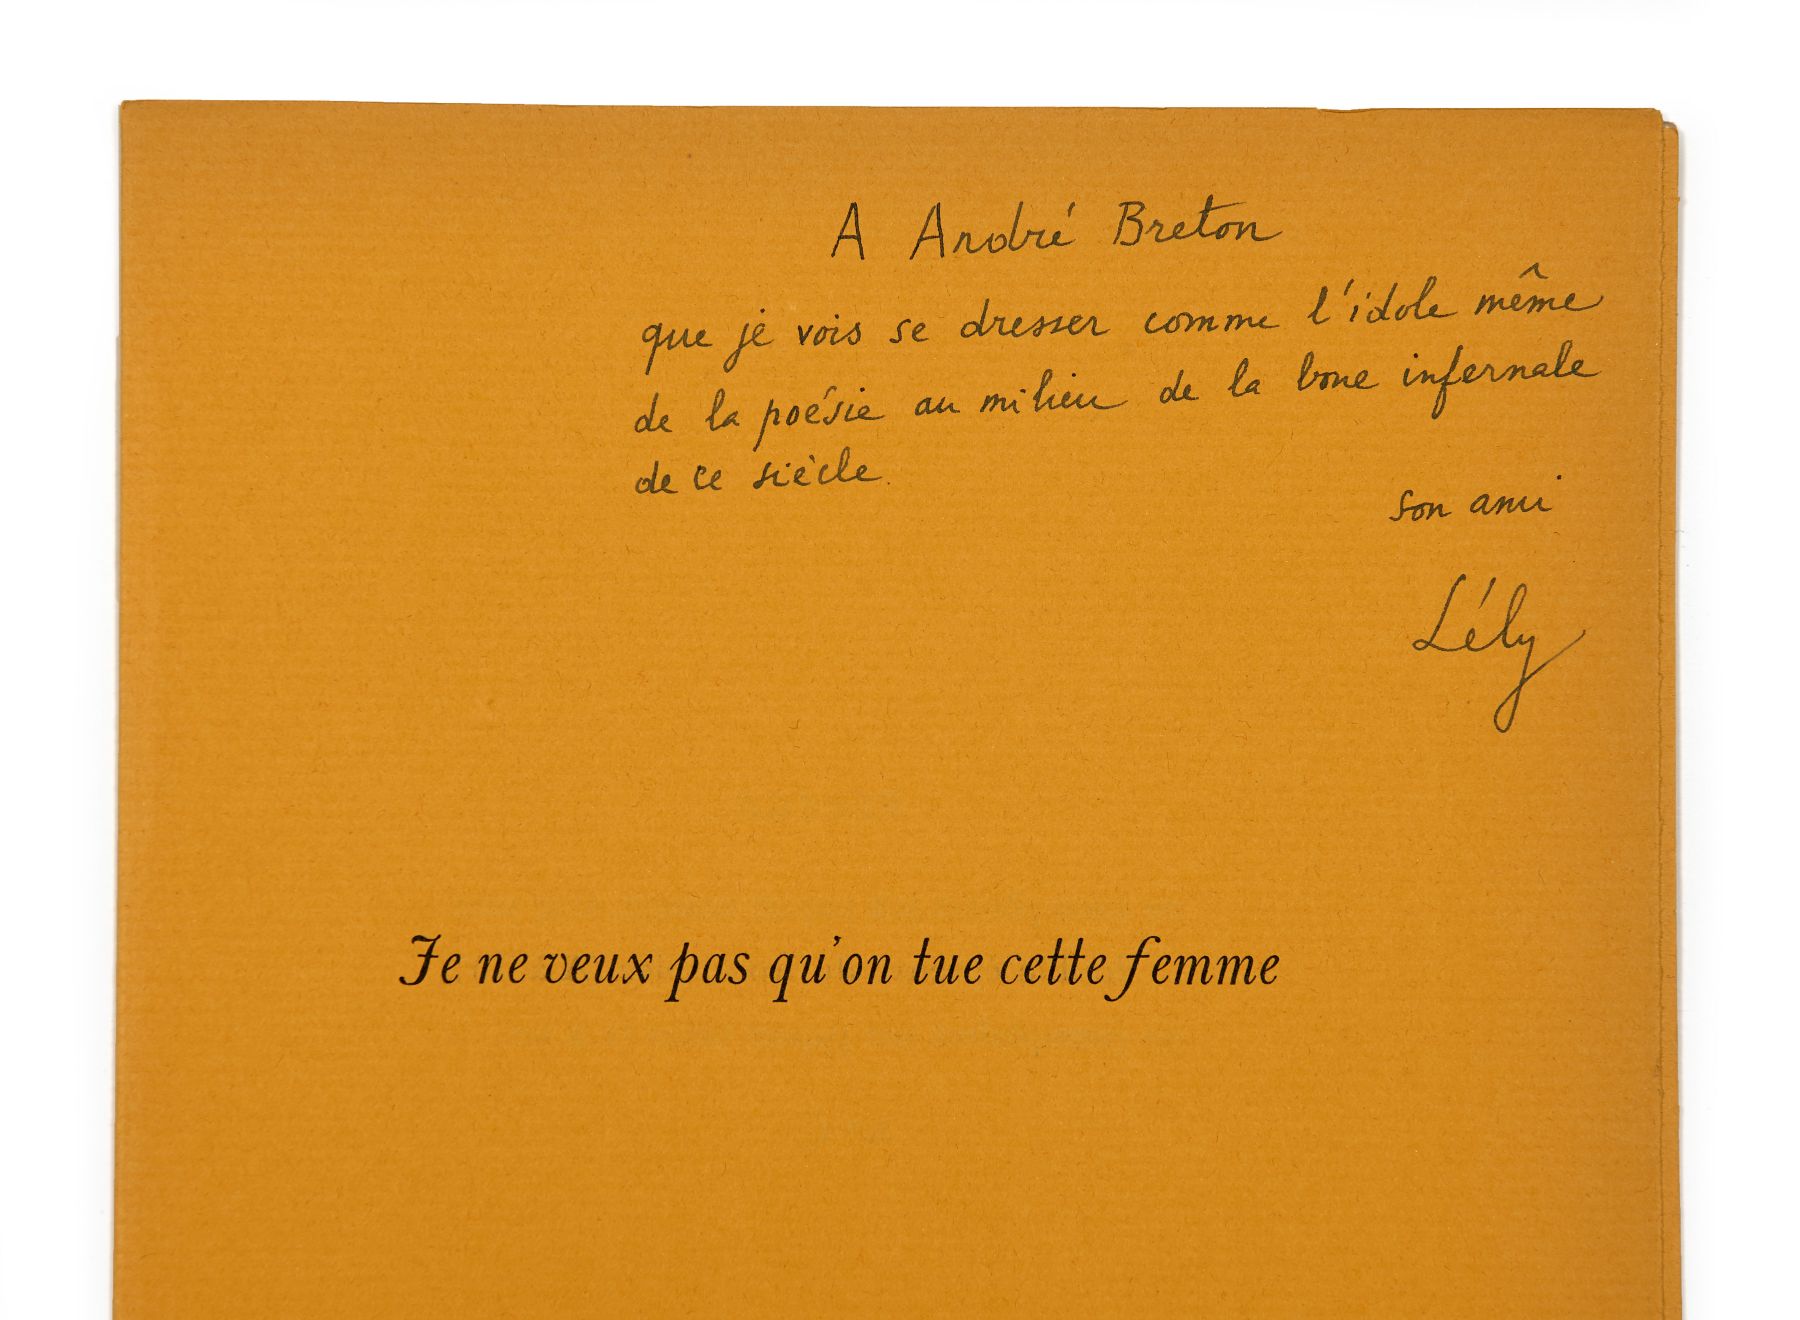 A André Breton
que je vois se dresser comme l'idole même
de la poésie au milieu de la boue infernale
de ce siècle.
son ami
Lély
Je ne veux pas qu'on tue cette femme